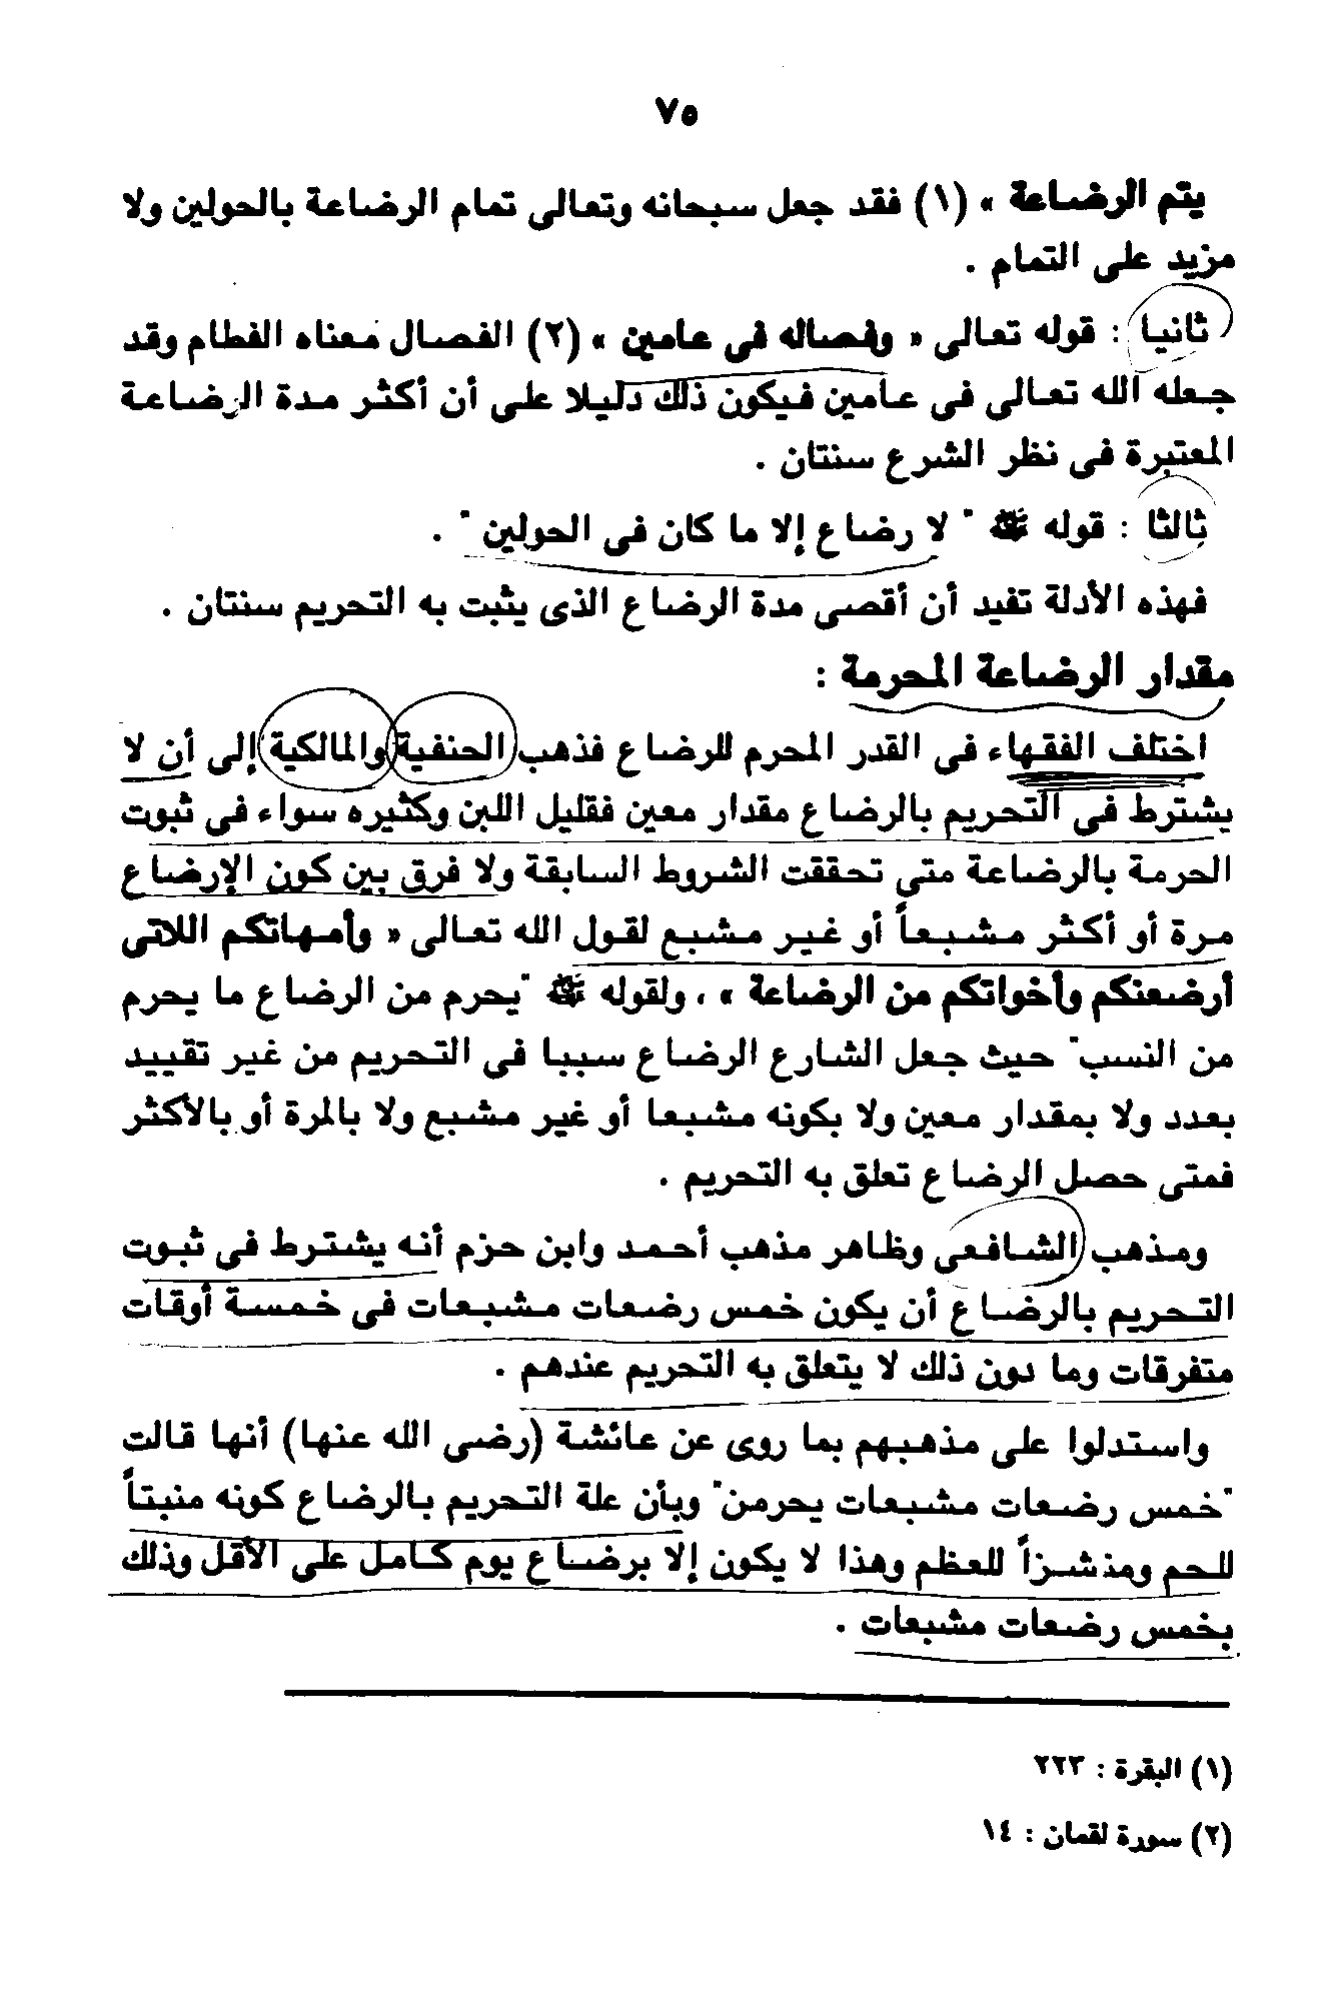 ٧٥
يتم الرضاعة » (١) فقد جعل سبحانه وتعالى تمام الرضاعة بالحولين ولا
مزيد على التمام .
ثانيا : قوله تعالى « وفصاله فى عامين » (٢) الفصال معناه الفطام وقد
جعله الله تعالى فى عامين فيكون ذلك دليلا على أن أكثر مدة الرضاعة
المعتبرة فى نظر الشرع سنتان .
ثالثا : قوله ﷺ " لا رضاع إلا ما كان فى الحولين " .
فهذه الأدلة تفيد أن أقصى مدة الرضاع الذى يثبت به التحريم سنتان .
مقدار الرضاعة المحرمة :
اختلف الفقهاء فى القدر المحرم للرضاع فذهب الحنفية والمالكية إلى أن لا
يشترط فى التحريم بالرضاع مقدار معين فقليل اللبن وكثيره سواء فى ثبوت
الحرمة بالرضاعة متى تحققت الشروط السابقة ولا فرق بين كون الإرضاع
مرة أو أكثر مشبعاً أو غير مشبع لقول الله تعالى « وأمهاتكم اللاتى
أرضعنكم وأخواتكم من الرضاعة » ، ولقوله ﷺ "يحرم من الرضاع ما يحرم
من النسب" حيث جعل الشارع الرضاع سببا فى التحريم من غير تقييد
بعدد ولا بمقدار معين ولا بكونه مشبعا أو غير مشبع ولا بالمرة أو بالأكثر
فمتى حصل الرضاع تعلق به التحريم .
ومذهب الشافعى وظاهر مذهب أحمد وابن حزم أنه يشترط فى ثبوت
التحريم بالرضاع أن يكون خمس رضعات مشبعات فى خمسة أوقات
متفرقات وما دون ذلك لا يتعلق به التحريم عندهم .
واستدلوا على مذهبهم بما روى عن عائشة (رضى الله عنها) أنها قالت
"خمس رضعات مشبعات يحرمن" وبأن علة التحريم بالرضاع كونه منبتاً
للحم ومنشزاً للعظم وهذا لا يكون إلا برضاع يوم كامل على الأقل وذلك
بخمس رضعات مشبعات .
(١) البقرة : ٢٢٣
(٢) سورة لقمان : ١٤